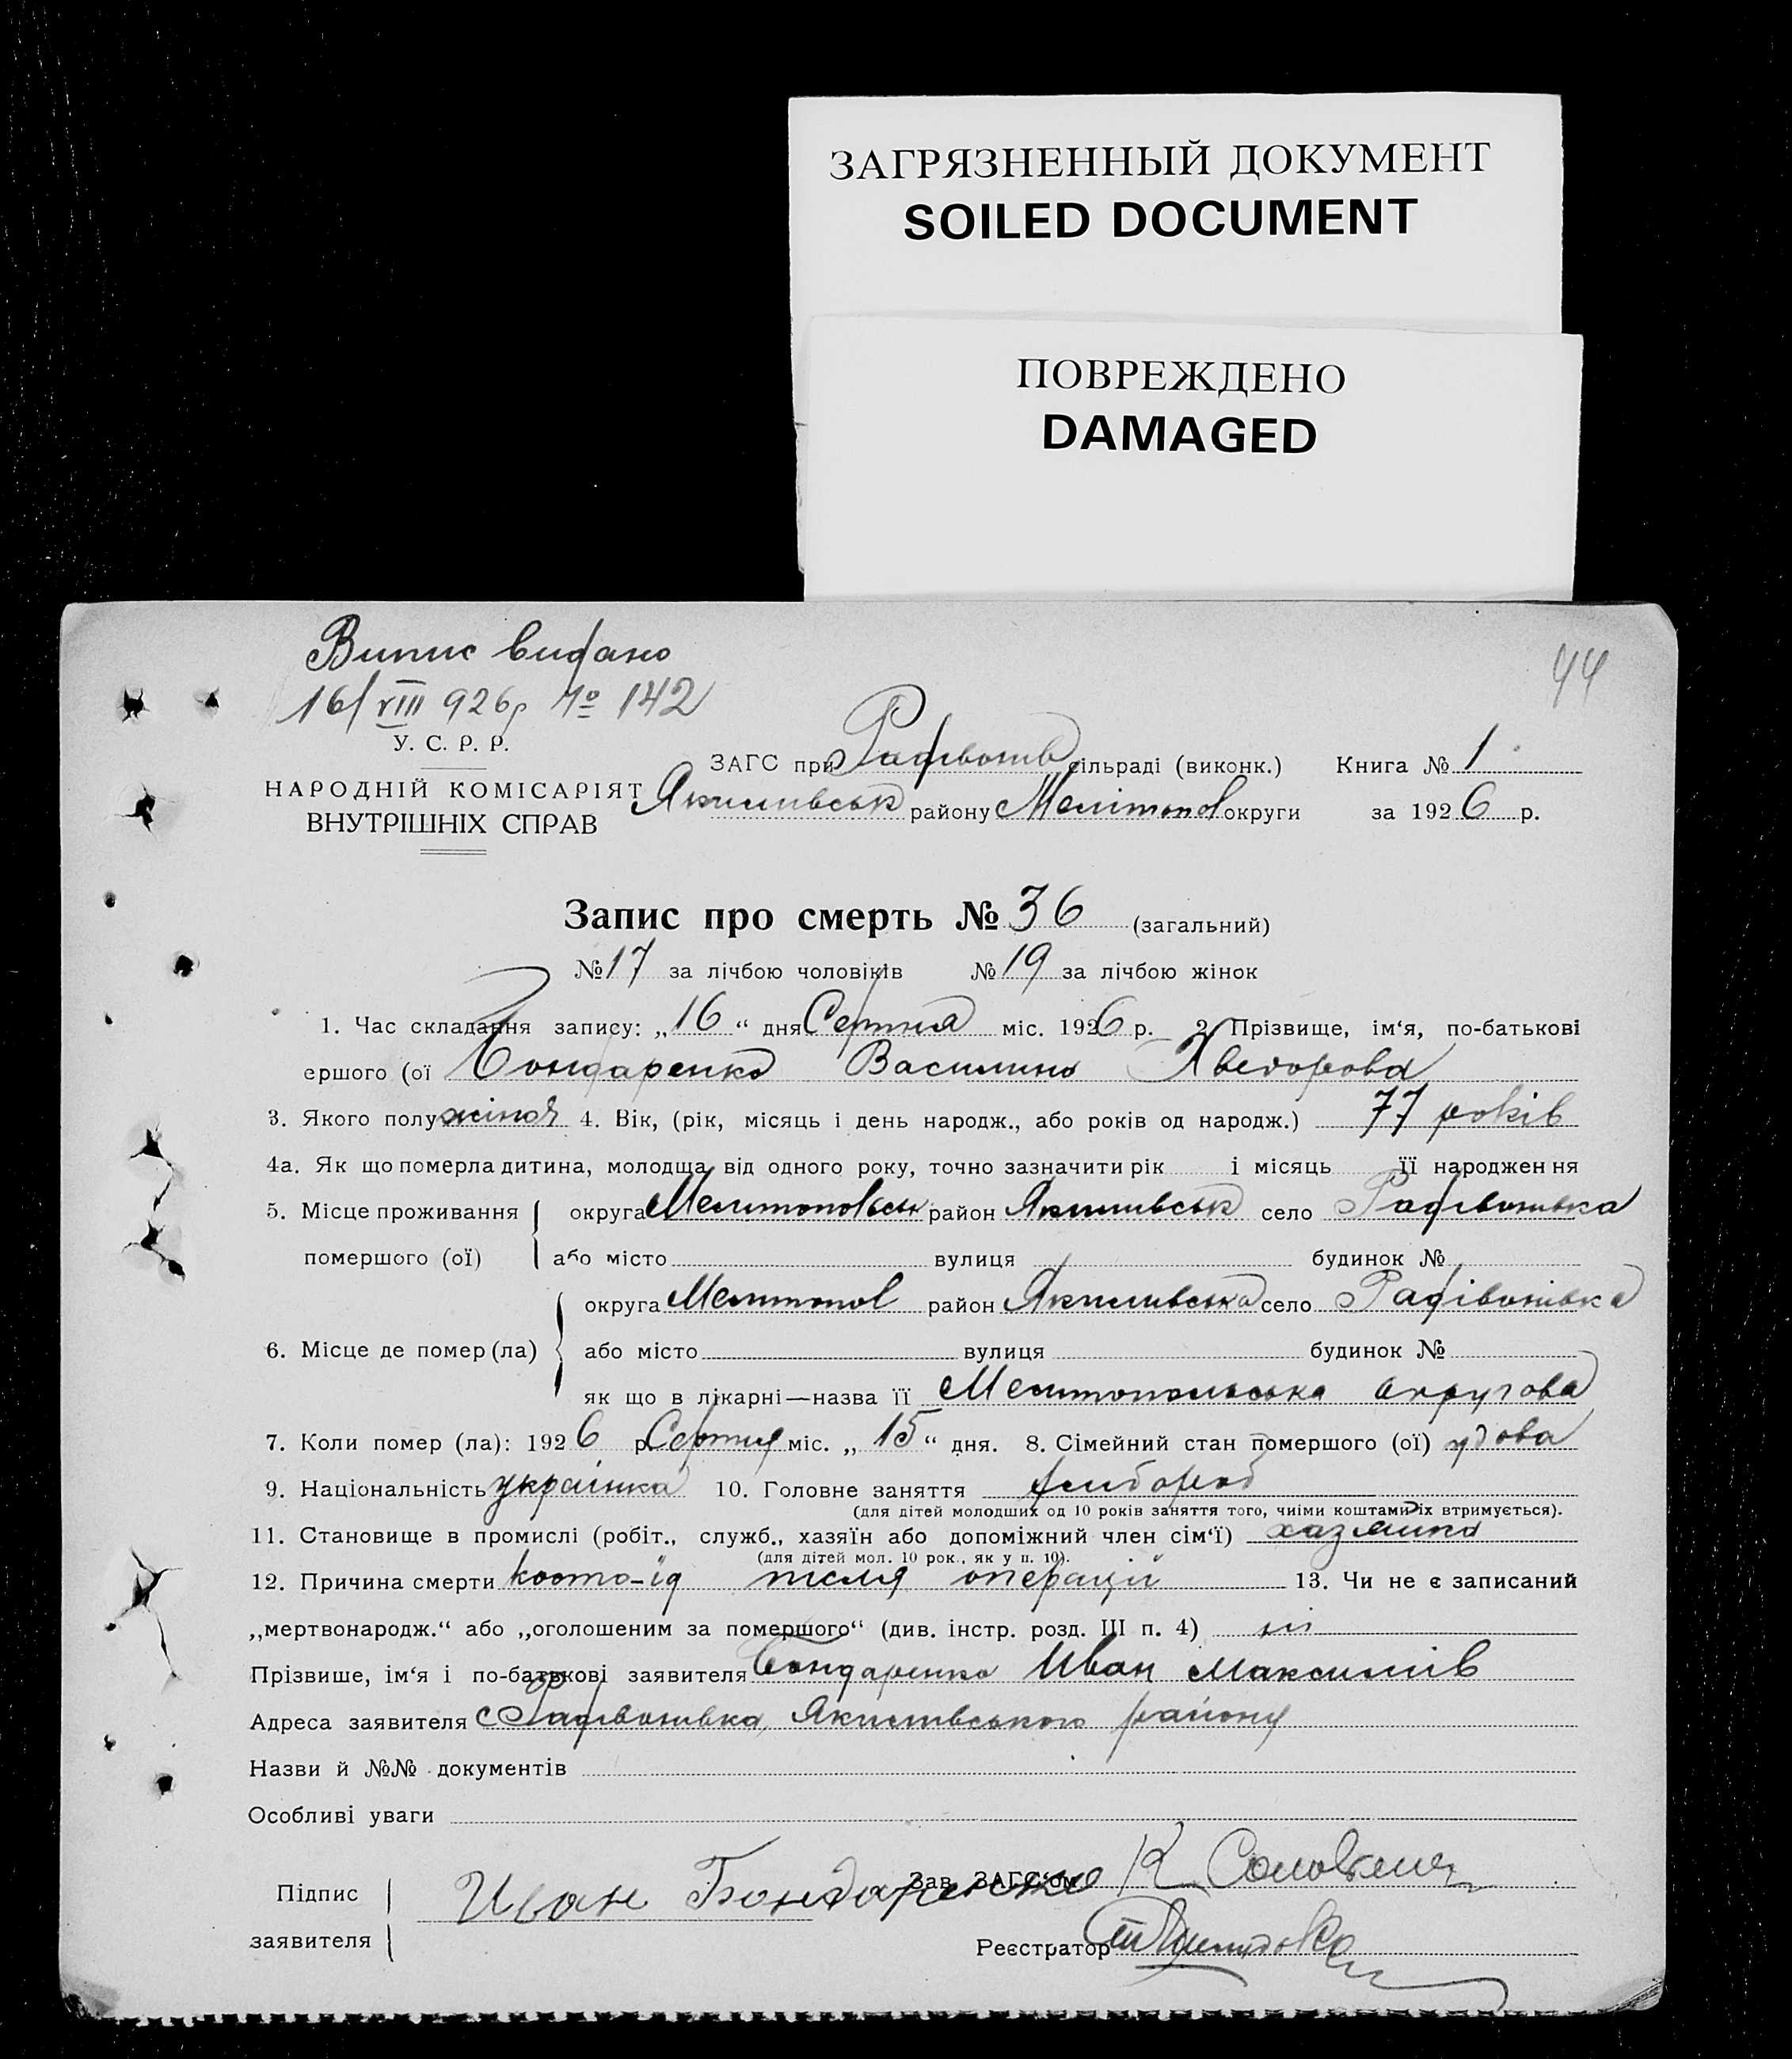 ЗАГРЯЗНЕННЫЙ ДОКУМЕНТ
SOILED DOCUMENT
ПОВРЕЖДЕНО
DAMAGED
Випис видано
16/VIII 926р № 142
44
У. С. Р. Р.
НАРОДНІЙ КОМІСАРІЯТ
ВНУТРІШНІХ СПРАВ
ЗАГС при Радівонів сільраді (виконк.) Книга № 1
Якимивськ району Мелітопол округи за 1926 р.
Запис про смерть № 36 (загальний)
№ 17 за лічбою чоловіків № 19 за лічбою жінок
1. Час складання запису: „16“ дня Серпня міс. 1926 р. 2. Прізвище, ім‘я, по-батькові
ершого (ої Бондаренко Василина Хведорова
3. Якого полу жіноч 4. Вік, (рік, місяць і день народж., або років од народж.) 77 років
4а. Як що померла дитина, молодща від одного року, точно зазначити рік і місяць її народження
5. Місце проживання округа Мелитопольськ район Якимивськ село Радівонивка
помершого (ої) або місто вулиця будинок №
округа Мелитопол район Якимивська село Радівонівка
6. Місце де помер (ла) або місто вулиця будинок №
як що в лікарні—назва її Мелитопольська округова
7. Коли помер (ла): 1926 р Серпня міс. „15“ дня. 8. Сімейний стан помершого (ої) удова
9. Національність українка 10. Головне заняття хлібороб
(для дітей молодших од 10 років заняття того, чиїми коштами їх втримується).
11. Становище в промислі (робіт., служб., хазяїн або допоміжний член сім‘ї) хазяйка
(для дітей мол. 10 рок., як у п. 10).
12. Причина смерти косто-їд після операції 13. Чи не є записаний
„мертвонародж.“ або „оголошеним за помершого“ (див. інстр. розд. III п. 4) ні
Прізвише, ім‘я і по-батькові заявителя Бондаренко Иван Максимів
Адреса заявителя с Радівонивка, Якимівського району
Назви й №№ документів
Особливі уваги
Підпис заявителя Иван Бондаренко
Зав. ЗАГС‘ом К
Реєстратор